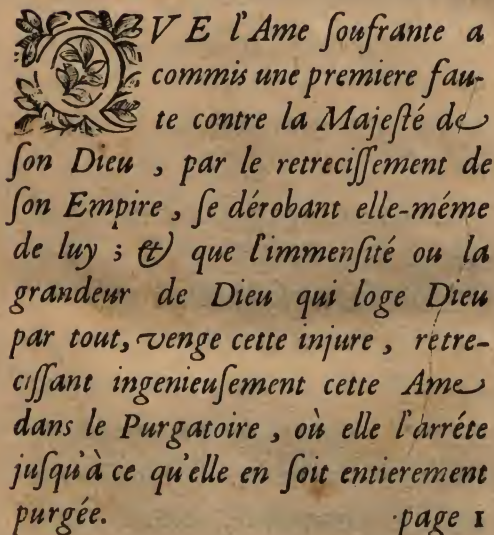 QVE l'Ame ſoufrante a
commis une premiere fau-
te contre la Majeſté de
ſon Dieu , par le retreciſſement de
ſon Empire , ſe dérobant elle-méme
de luy ; & que l'immenſité ou la
grandeur de Dieu qui loge Dieu
par tout, venge cette injure , retre-
ciſſant ingenieuſement cette Ame
dans le Purgatoire , où elle l'arréte
juſqu'à ce qu'elle en ſoit entierement
purgée. page 1